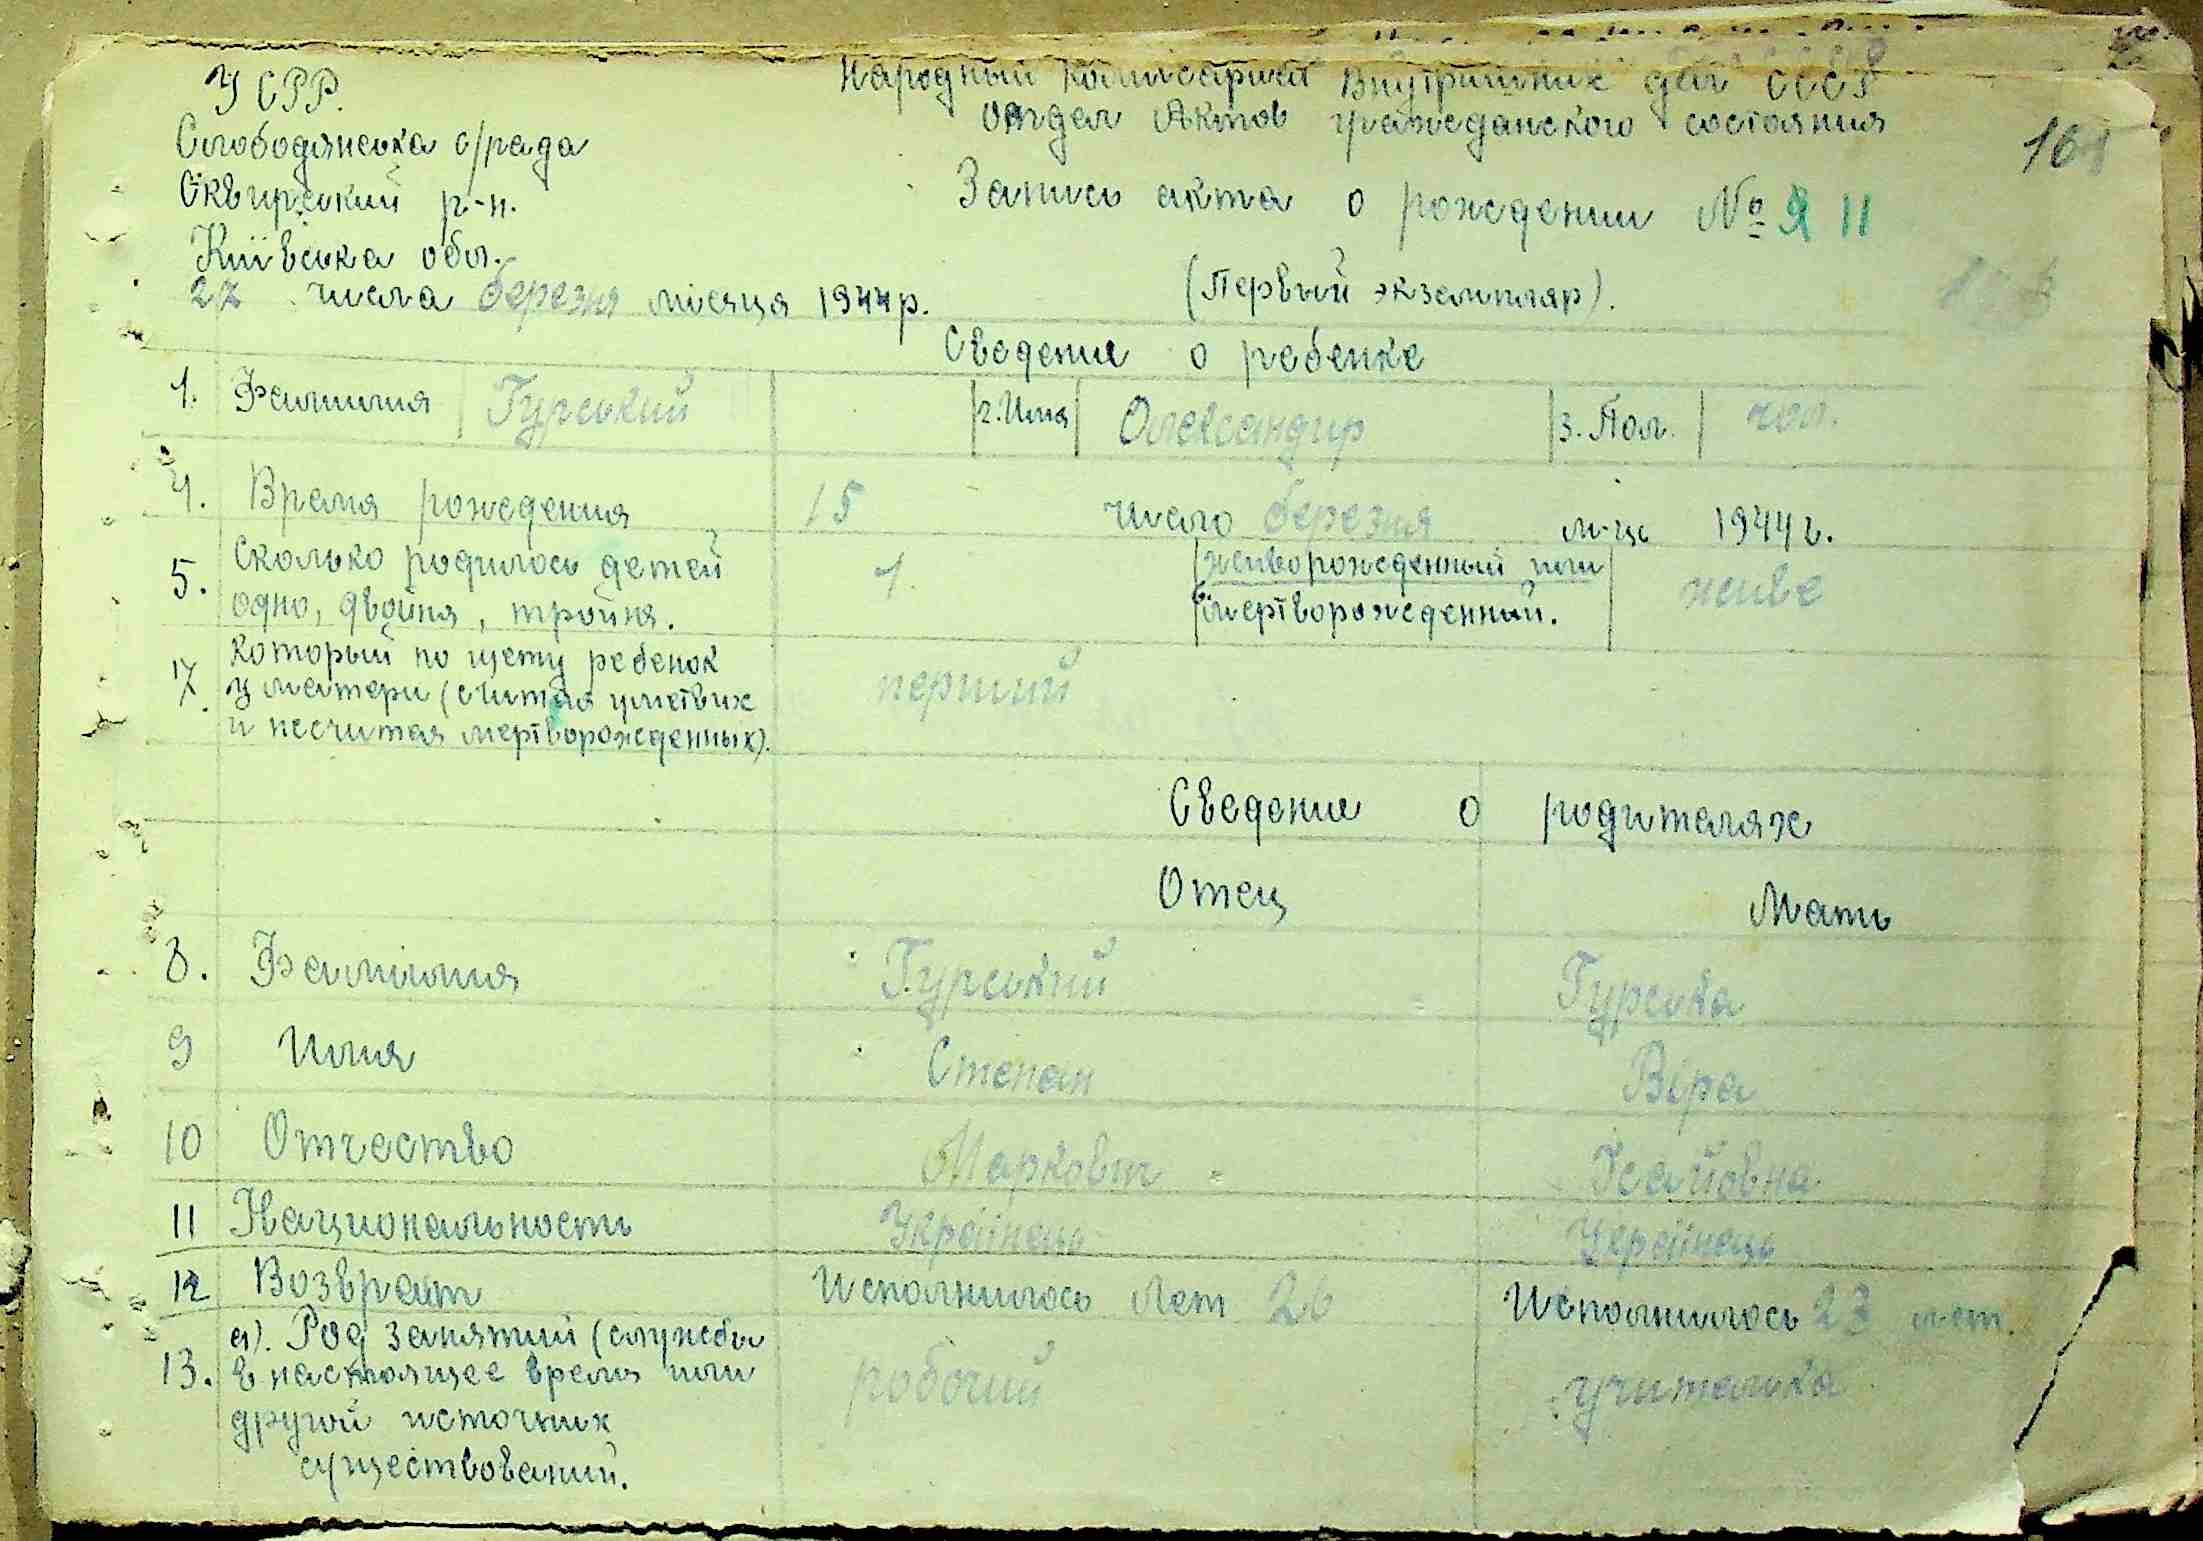 УСРР.
Народный комиссариат Внутриших дел СССР
Отдел Актов гражданского состояния
Слободянська с/рада
161
Сквирський р-н.
Запись акта о рождении № 11
Київська обл.
27 числа березня місяця 1944р.
(Первый экземпляр).
Сведение о ребенке
1. Фамилия Гурський 2. Имя Олександир 3. Пол. чол.
4. Время рождения 15 число березня м-ць 1944 г.
5. Сколько родилось детей одно, двойня, тройня. 1. живорожденный или мертворожденный. живе
7. который по щету ребенок
у матери (считая уметвих
и несчитая мертворожденных). перший
Сведение о родителях
Отец Мать
8. Фамилия Гурський Гурська
9 Имя Степан Віра
10 Отчество Маркович Ісайовна
11 Национальность Українець Українець
12 Возврат Исполнилось лет 26 Исполнилось 23 лет.
13. а). Род занятий (службы
в настоящее время или
другой источник
существований. робочий учителька